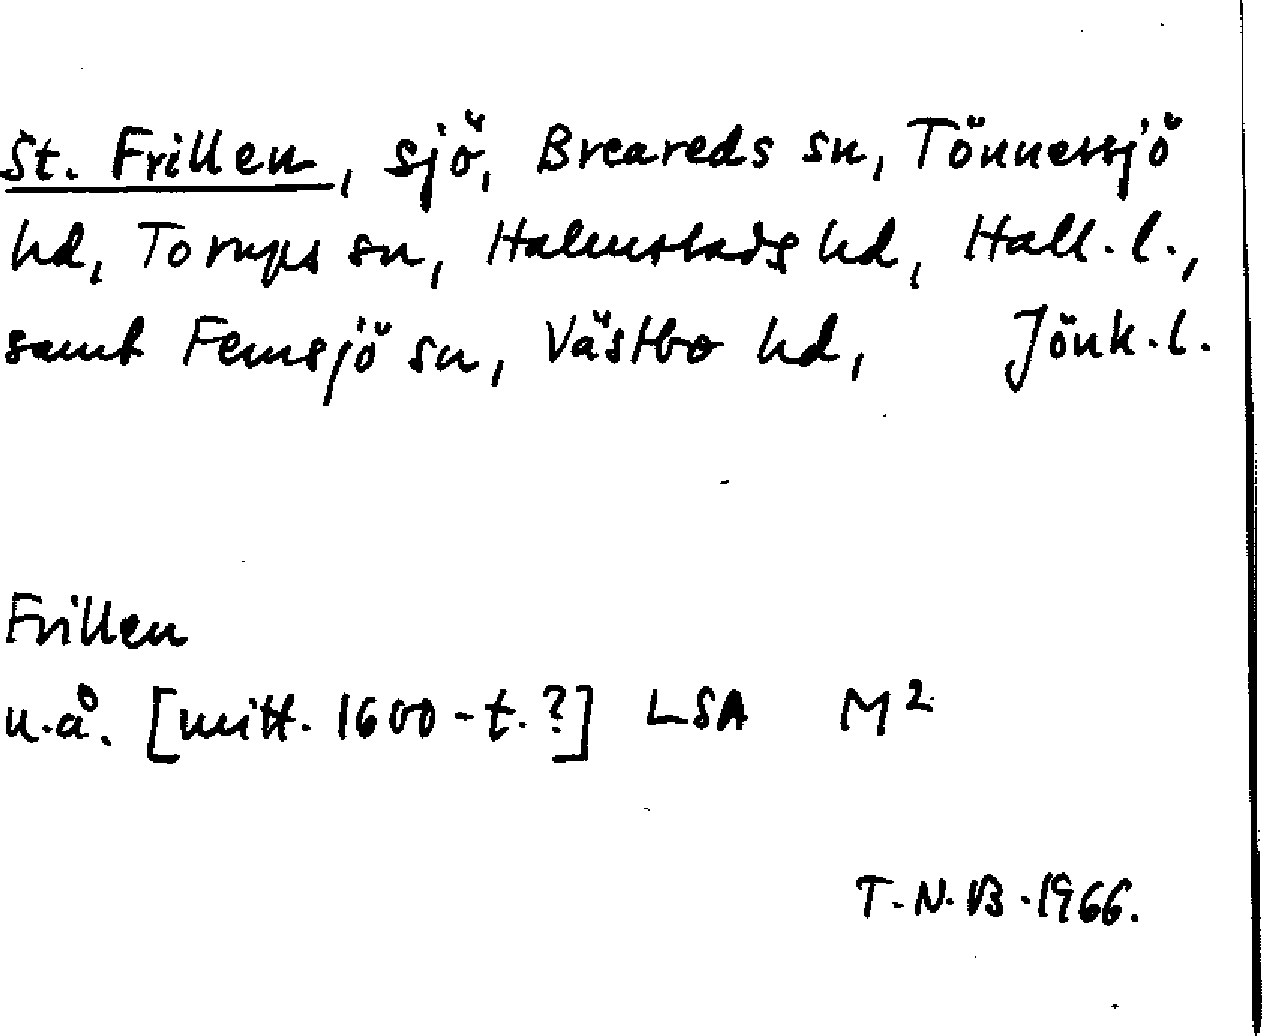 St. Frillen, sjö, Breareds sn, Tönnersjö
hd, Torups sn, Halmstads hd, Hall. l.,
samt Femsjö sn, Västbo hd, Jönk. l.
Frillen
u.å. [mitt. 1600-t.?] LSA M2
T.N.B. 1966.